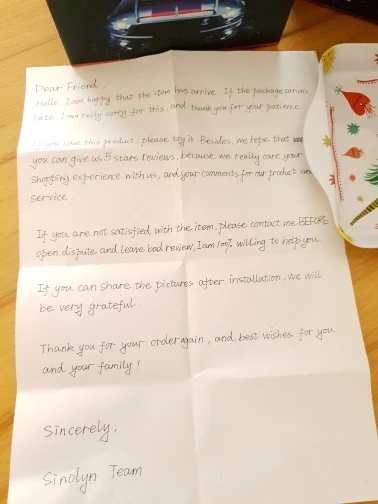 Dear Friend,
Hello. I am happy that the item has arrive. If the package arrives
late, I am really sorry for this, and thank you for your patience.
If you like this product, please buy it. Besides, we hope that
you can give us 5 stars reviews, because we really care your
shopping experience with us, and your comments for our product and
service.
If you are not satisfied with the item, please contact me BEFORE
open dispute and leave bad review, I am 100% willing to help you.
If you can share the pictures after installation, we will
be very grateful.
Thank you for your order again, and best wishes for you
and your family!
Sincerely,
Sinolyn Team